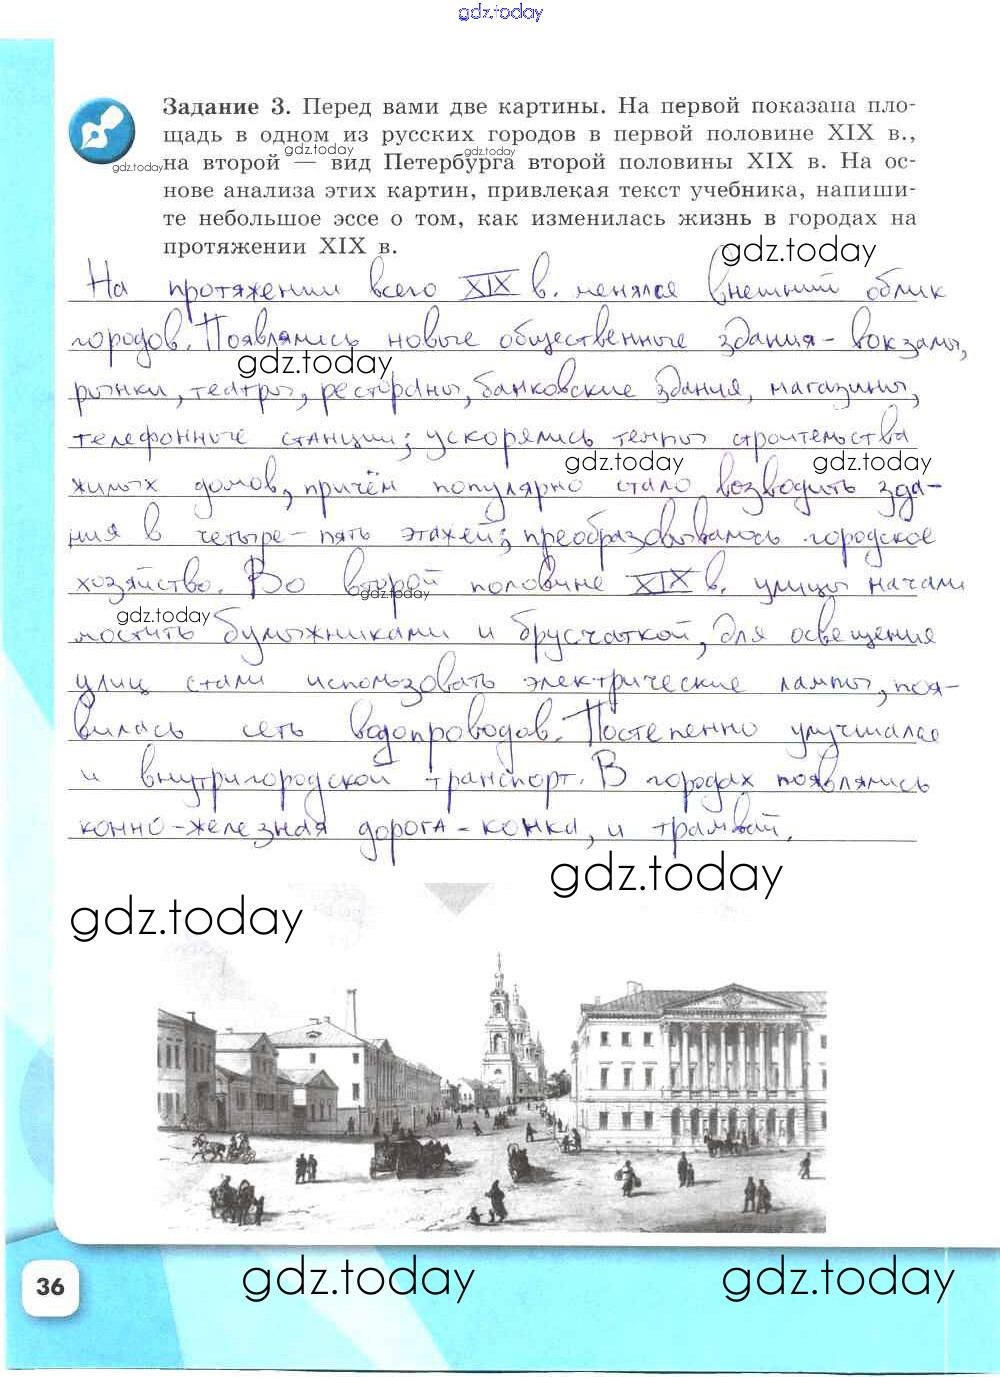 gdz.today
Задание 3. Перед вами две картины. На первой показана пло-
щадь в одном из русских городов в первой половине XIX в.,
gdz.today gdz.today
на второй — вид Петербурга второй половины XIX в. На ос-
gdz.today
нове анализа этих картин, привлекая текст учебника, напиши-
те небольшое эссе о том, как изменилась жизнь в городах на
протяжении XIX в.
gdz.today
На протяжении всего XIX в. менялся внешний облик
городов. Появлялись новые общественные здания - вокзалы,
gdz.today
рынки, театры, рестораны, банковские здания, магазины,
телефонные станции; ускорялись темпы строительства
gdz.today gdz.today
жилых домов, причём популярно стало возводить зда-
ния в четыре-пять этажей; преобразовывалось городское
хозяйство. Во второй половине XIX в. улицы начали
gdz.today
gdz.today
мостить булыжниками и брусчаткой, для освещения
улиц стали использовать электрические лампы, поя-
вилась сеть водопроводов. Постепенно улучшался
и внутригородской транспорт. В городах появлялись
конно-железная дорога - конка, и трамвай.
gdz.today
gdz.today
36
gdz.today gdz.today